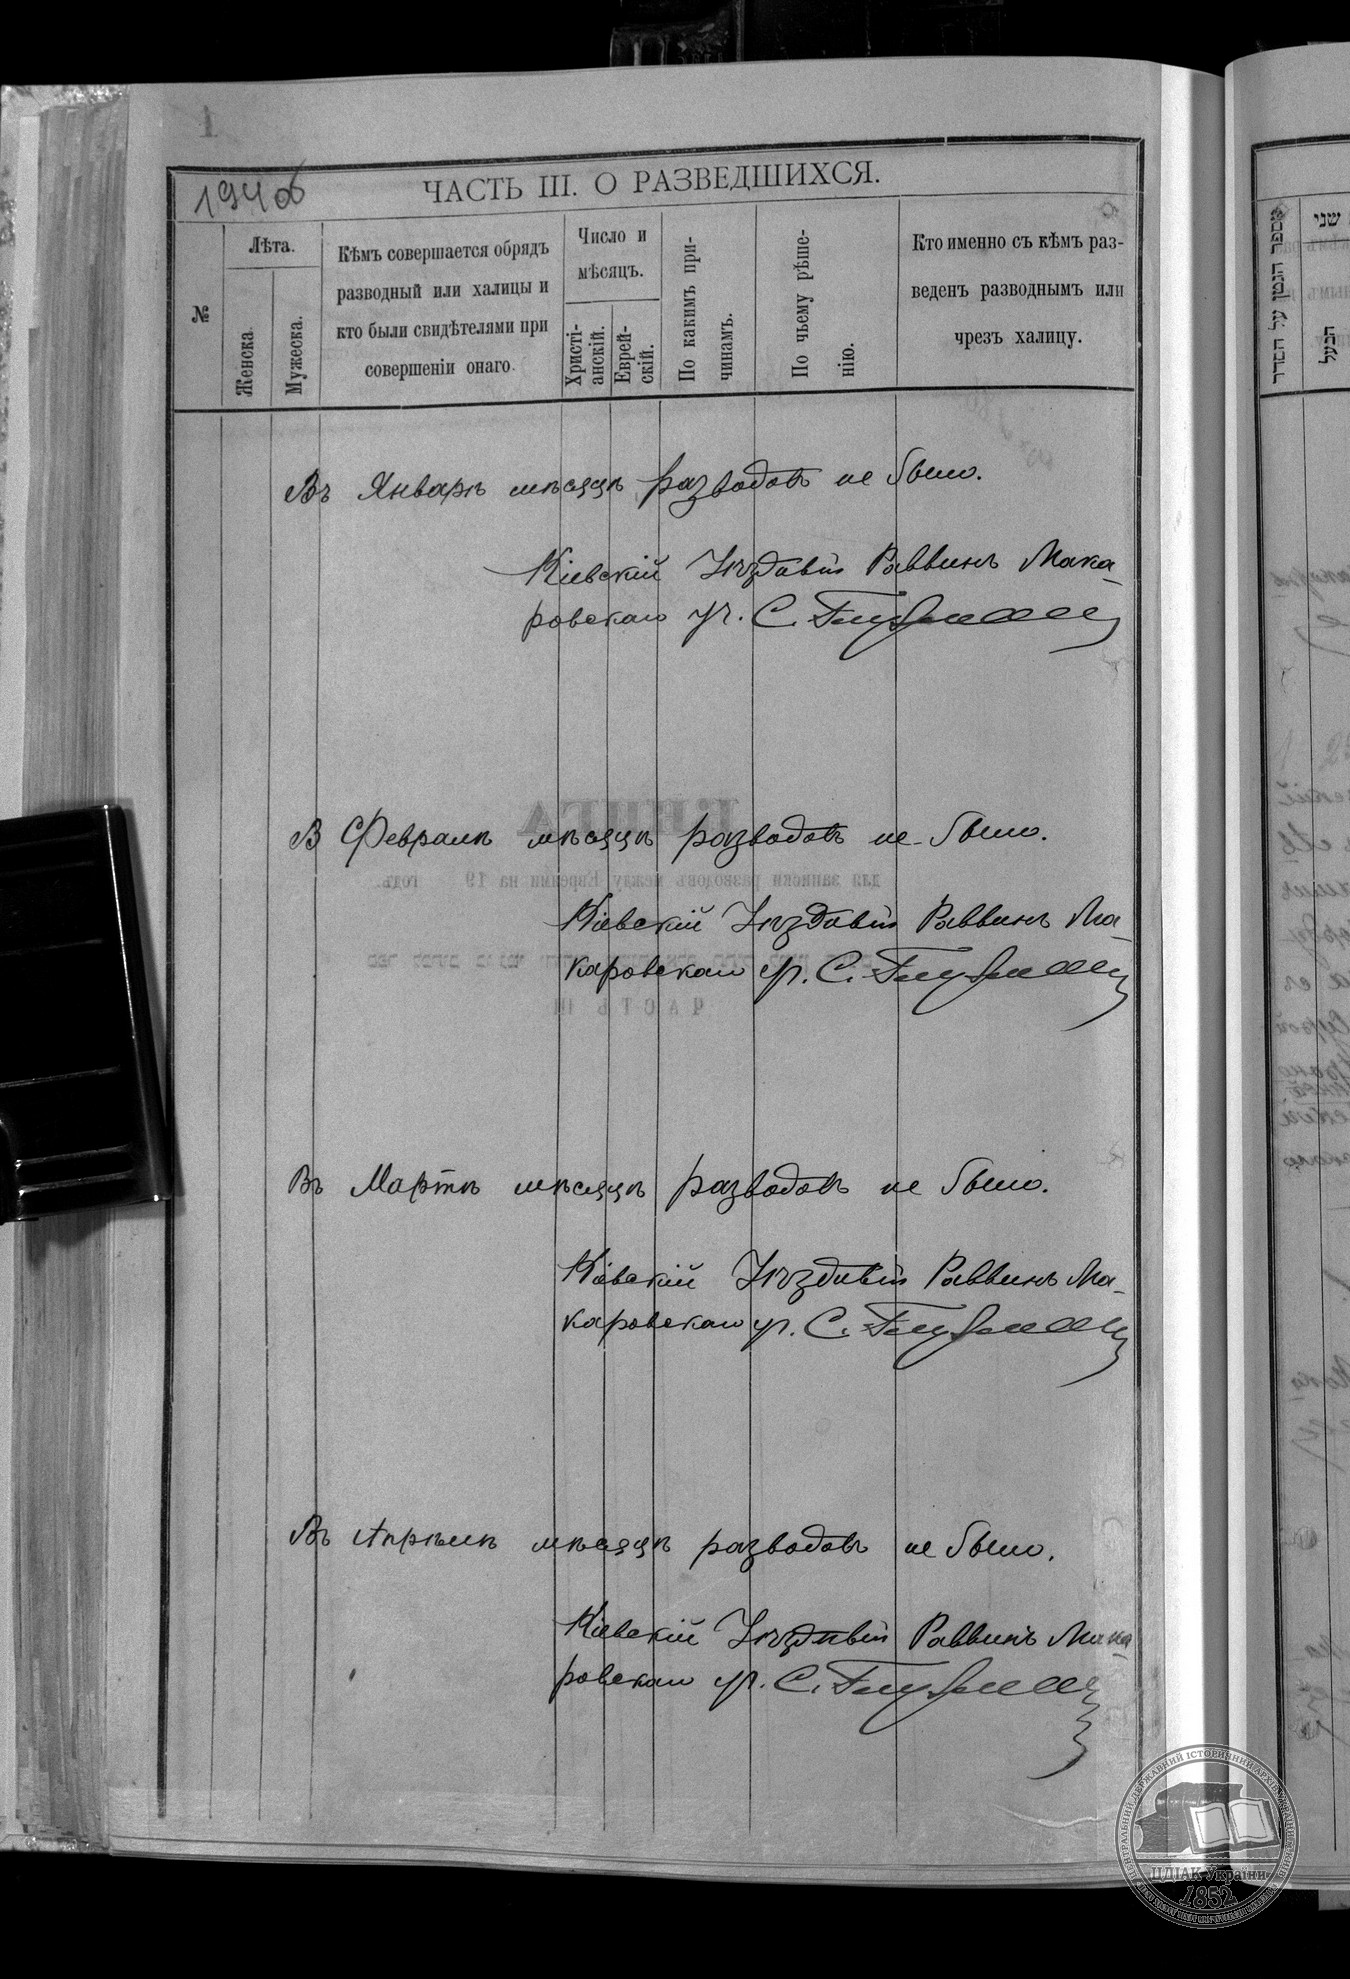 194об
ЧАСТЬ III. О РАЗВЕДШИХСЯ.
№
Лѣта.
Женска
Мужеска.
Кѣмъ совершается обрядъ
разводный или халицы и
кто были свидѣтелями при
совершеніи онаго.
Число и
мѣсяцъ.
Христі-
анскій.
Еврей-
скій.
По какимъ при-
чинамъ.
По чьему рѣше-
нію.
Кто именно съ кѣмъ раз-
веденъ разводнымъ или
чрезъ халицу.
Въ Январѣ мѣсяцѣ разводовъ не было.
Кіевскій Уѣздный Раввинъ Мака-
ровскаго уч. С.
В Февралѣ мѣсяцѣ разводовъ не было.
Кіевскій Уѣздный Раввинъ Ма-
каровскаго уч. С.
Въ Мартѣ мѣсяцѣ разводовъ не было.
Кіевскій Уѣздный Раввинъ Ма-
каровскаго уч. С.
Въ Апрѣлѣ мѣсяцѣ разводовъ не было.
Кіевскій Уѣздный Раввинъ Мака
ровскаго уч. С.
מספר הגטין על הסדר
שני
הבעל
ЦДІАК України
1852